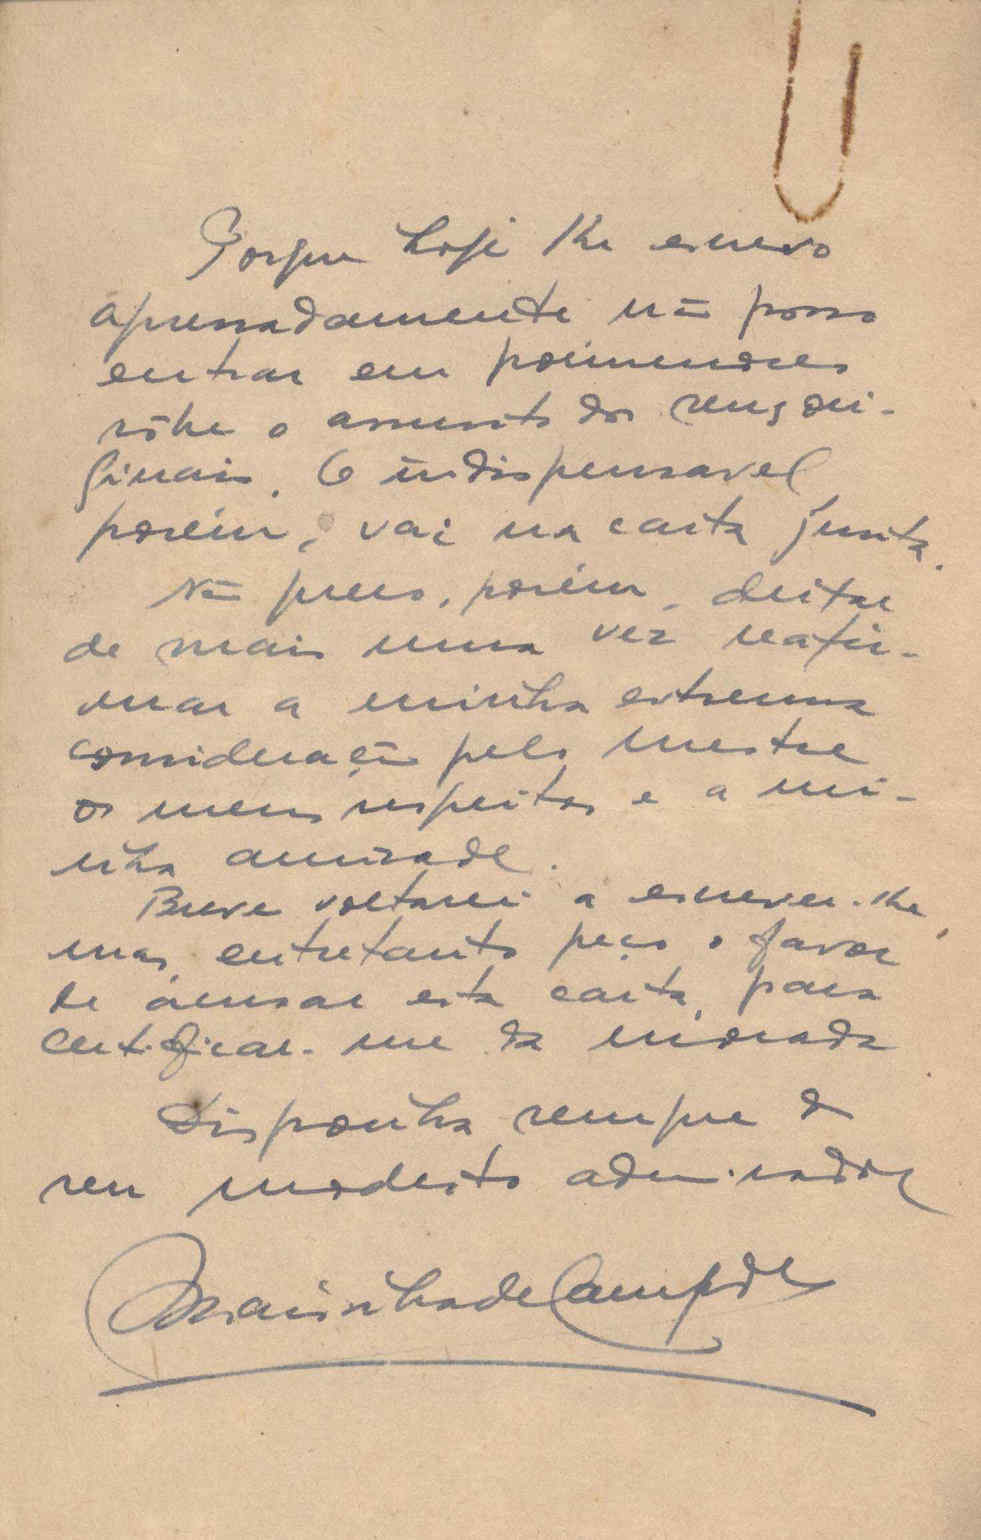 Porque hoje lhe escrevo
apressadamente não posso
entrar em pormenores
sôbre o assunto dos seus ori-
ginais. O indispensavel
porém, vai na carta junta.
Não quero, porém, deixar
de mais uma vez reafir-
mar a minha extrema
consideração pelo mestre
os meus respeitos e a mi-
nha amizade.
Breve voltarei a escrever-lhe,
mas, entretanto peço o favor
de acusar esta carta, para
certificar-me da morada
Disponha sempre do
seu modesto admirador
Marinha de Campos